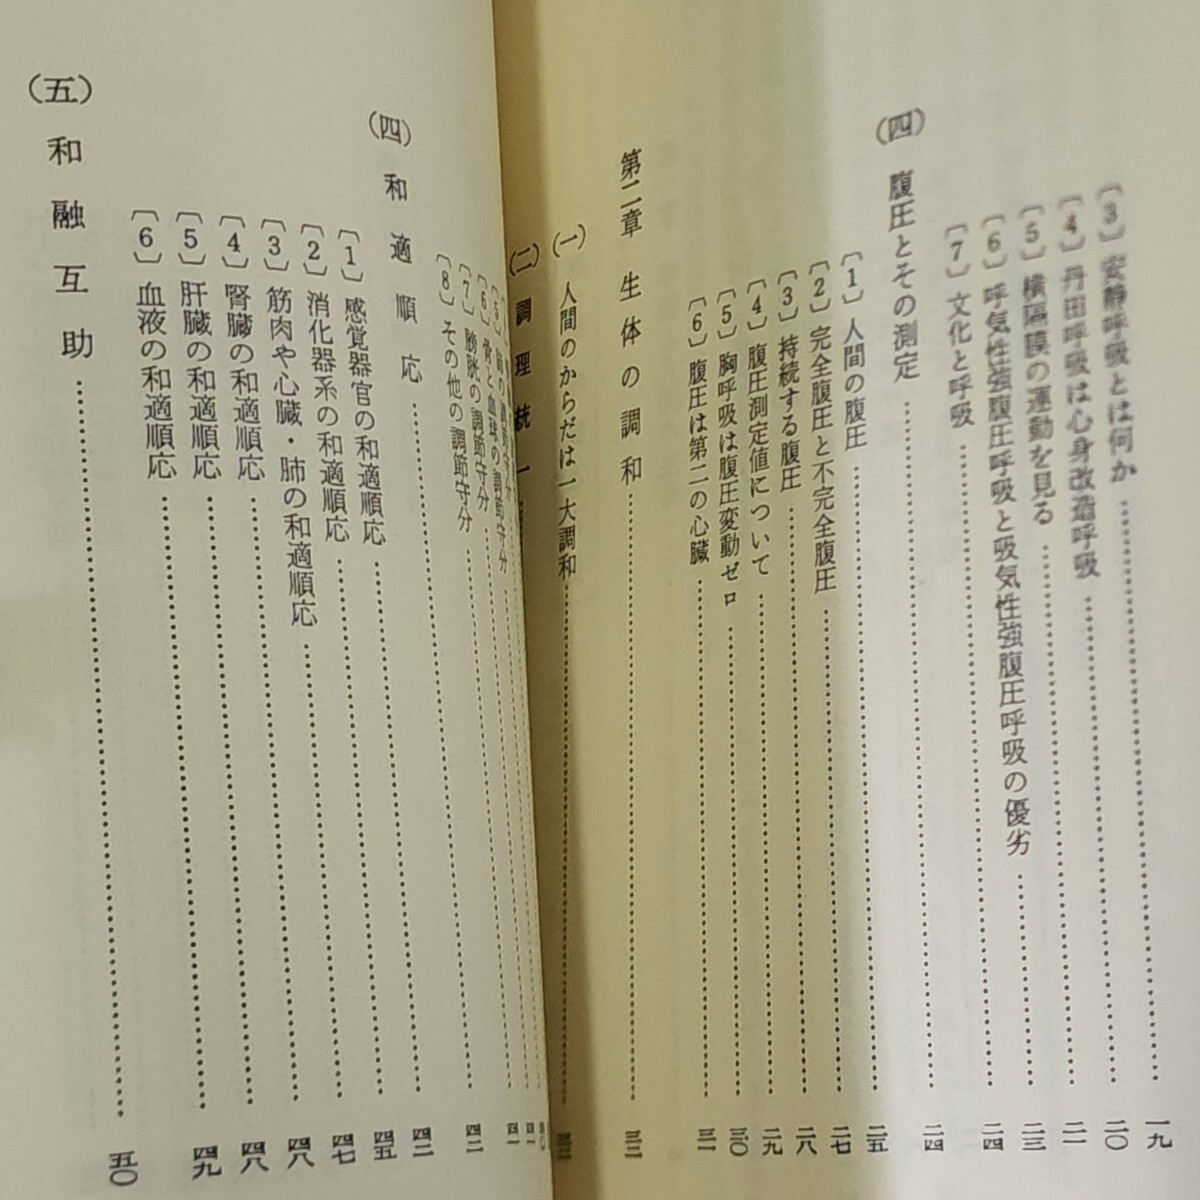 〔3〕安静呼吸とは何か…………一九
〔4〕丹田呼吸は心身改造呼吸…………二〇
〔5〕横隔膜の運動を見る…………二一
〔6〕呼気性強腹圧呼吸と吸気性強腹圧呼吸の優劣…………二三
〔7〕文化と呼吸…………二四
(四) 腹圧とその測定…………二四
〔1〕人間の腹圧…………二五
〔2〕完全腹圧と不完全腹圧…………二七
〔3〕持続する腹圧…………二八
〔4〕腹圧測定値について…………二九
〔5〕胸呼吸は腹圧変動ゼロ…………三〇
〔6〕腹圧は第二の心臓…………三一
第二章 生体の調和…………三三
(一) 人間のからだは一大調和…………三三
(二) 調理統一
〔6〕骨と血球の調節守分…………四一
〔7〕膀胱の調節守分
〔8〕その他の調節守分…………四二
(四) 和適順応…………四二
〔1〕感覚器官の和適順応…………四五
〔2〕消化器系の和適順応…………四七
〔3〕筋肉や心臓・肺の和適順応…………四八
〔4〕腎臓の和適順応…………四八
〔5〕肝臓の和適順応…………四九
〔6〕血液の和適順応
(五) 和融互助…………五〇